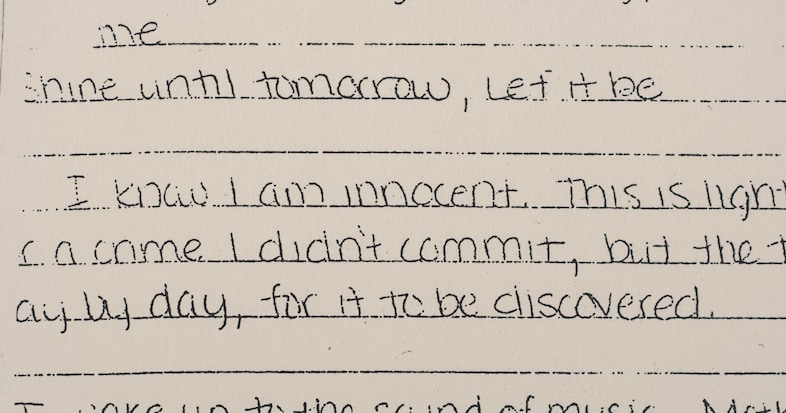 me
shine until tomorrow, Let it be
I know I am innocent. This is light
a crime I didn't commit, but the t
ay by day, for it to be discovered.
I wake up to the sound of music. Moth